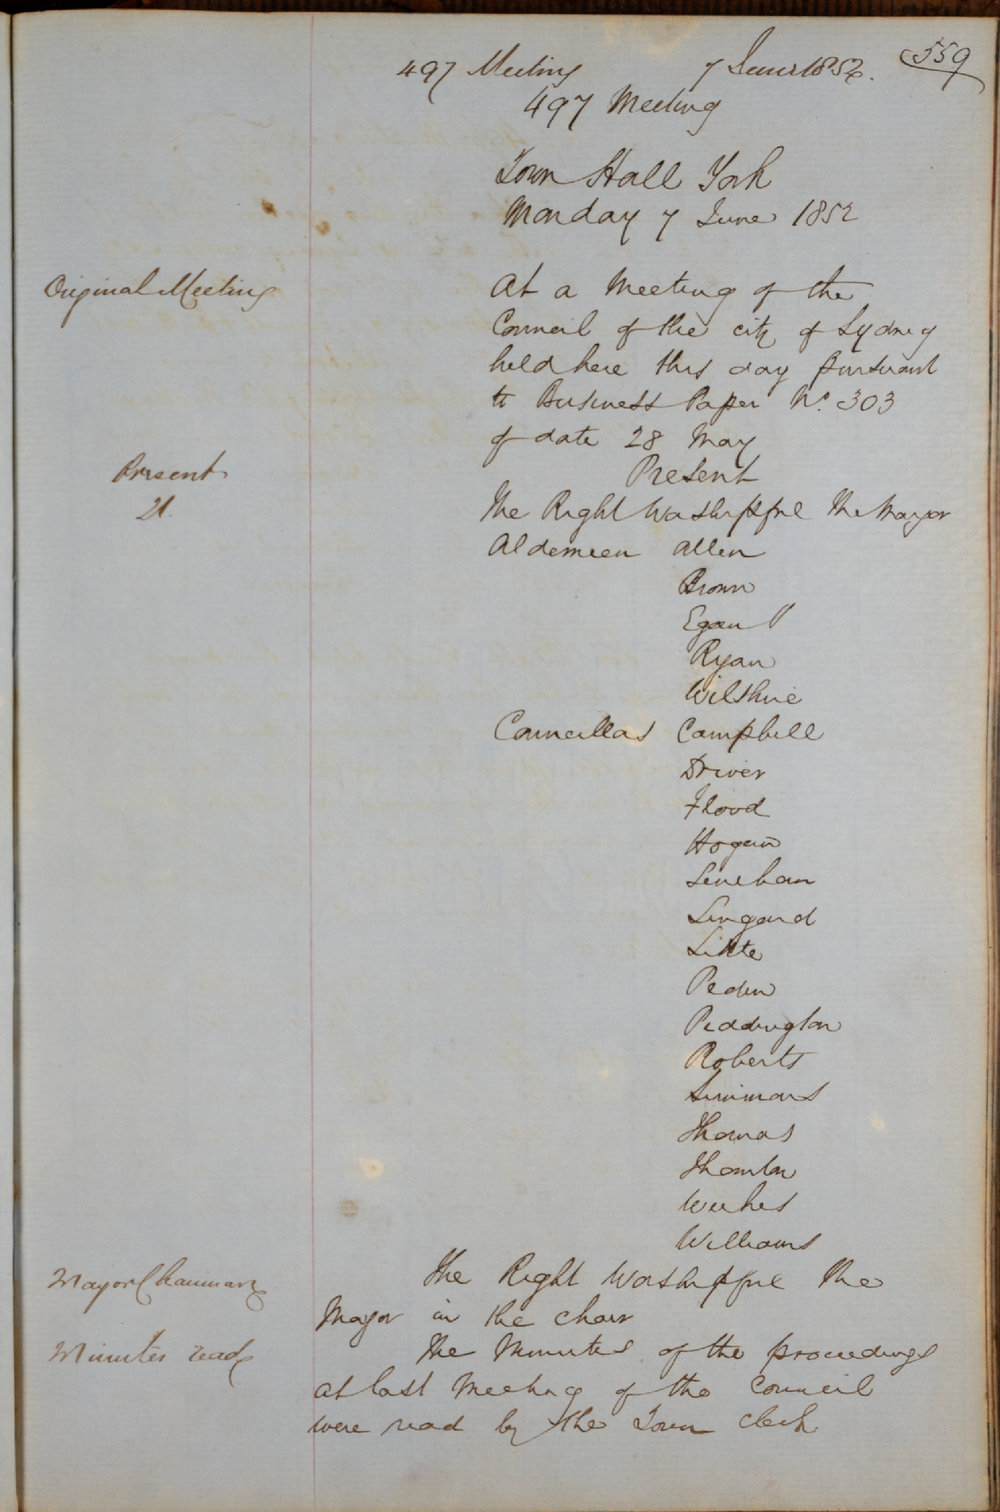 559
497 Meeting 7 June 1852.
497 Meeting
Town Hall York
Monday 7 June 1852
Original Meeting
At a Meeting of the
Council of the city of Sydney
held here this day pursuant
to Business Paper No. 303
of date 28 May
Present
Present
21.
The Right Worshipful The Mayor
Aldermen Allen
Brown
Egan
Ryan
Wilshire
Councillors Campbell
Driver
Flood
Hogan
Lenehan
Lingard
Little
Peden
Piddington
Roberts
Simmons
Thomas
Thornton
Weekes
Williams
Mayor Chairman
The Right Worshipful The
Mayor in the chair
Minutes read
The Minutes of the proceedings
at last Meeting of the Council
were read by the Town Clerk